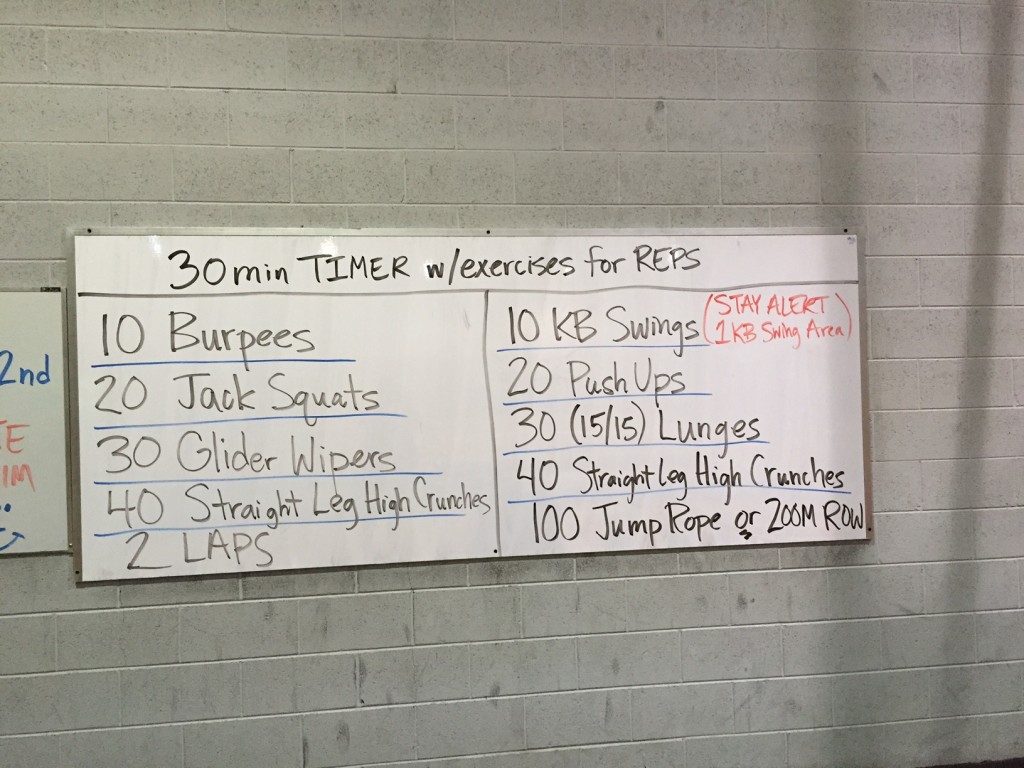 30 min TIMER w/exercises for REPS
10 Burpees
20 Jack Squats
30 Glider Wipers
40 Straight Leg High Crunches
2 LAPS
10 KB Swings (STAY ALERT
1 KB Swing Area)
20 Push Ups
30 (15/15) Lunges
40 Straight Leg High Crunches
100 Jump Rope or 200M ROW
2nd